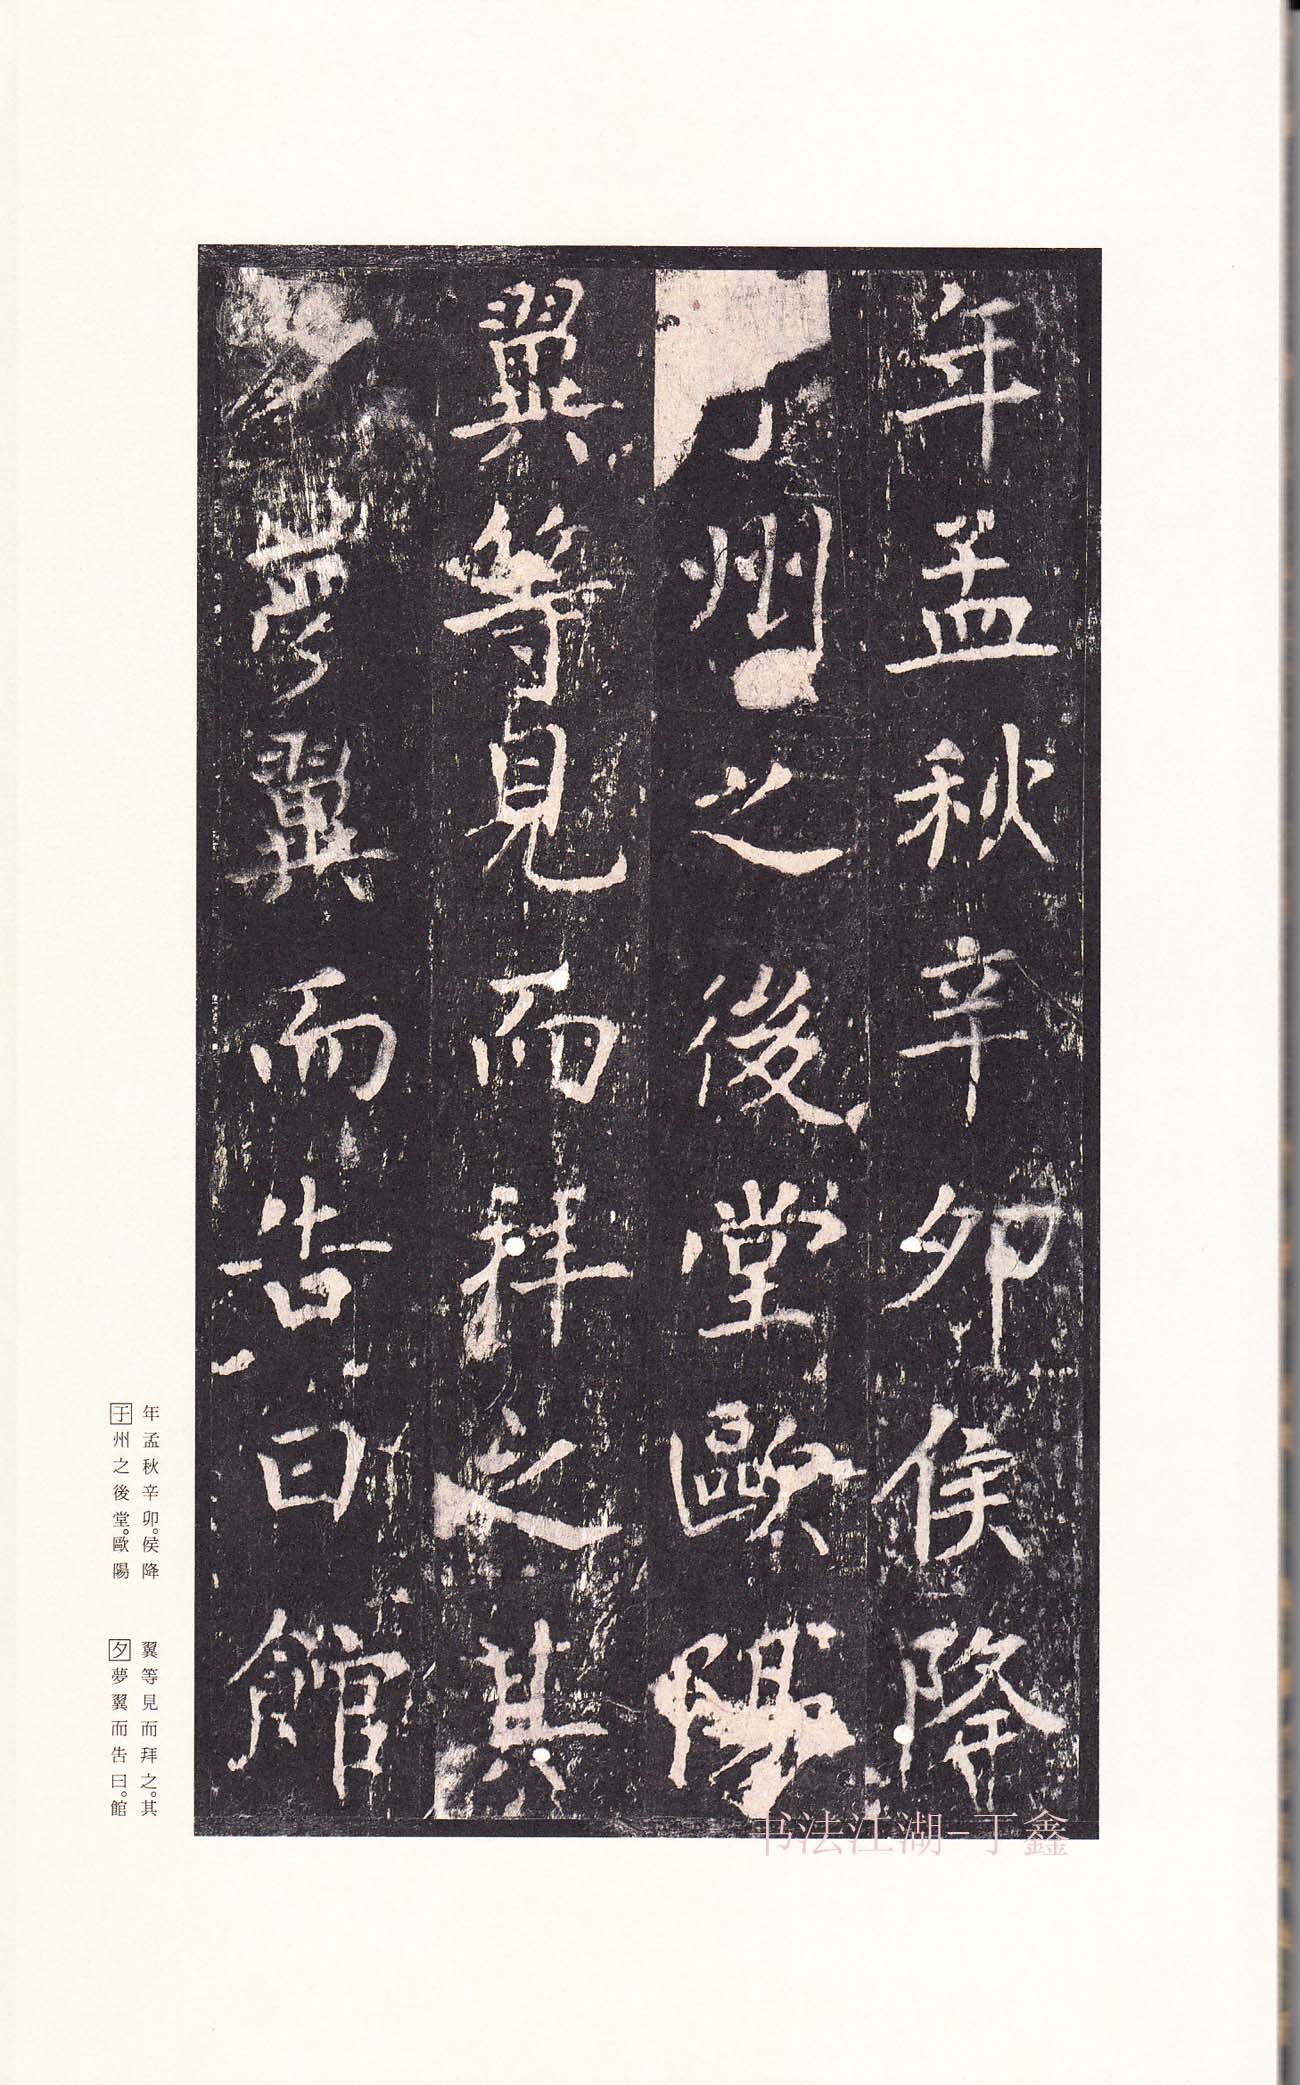 年孟秋辛卯侯降
于州之後堂歐陽
翼等見而拜之其
夕夢翼而告曰館
年孟秋辛卯。侯降
于州之後堂。歐陽
翼等見而拜之。其
夕夢翼而告曰。館
书法江湖-丁鑫